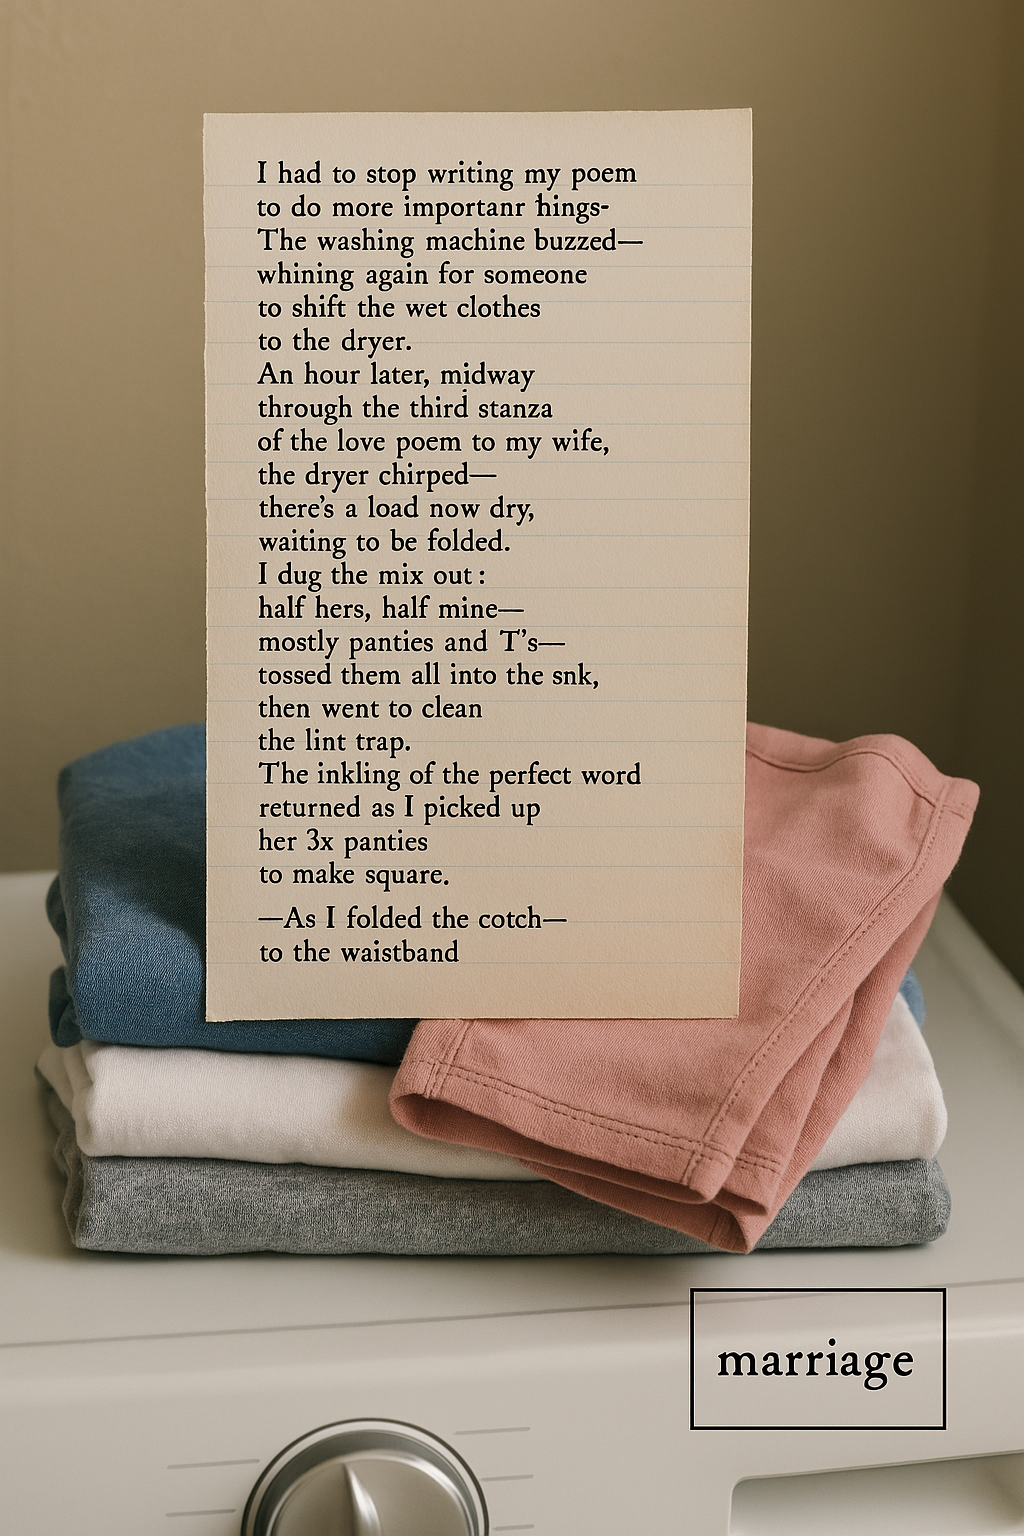 I had to stop writing my poem
to do more importanr hings-
The washing machine buzzed—
whining again for someone
to shift the wet clothes
to the dryer.
An hour later, midway
through the third stanza
of the love poem to my wife,
the dryer chirped—
there's a load now dry,
waiting to be folded.
I dug the mix out:
half hers, half mine—
mostly panties and T's—
tossed them all into the snk,
then went to clean
the lint trap.
The inkling of the perfect word
returned as I picked up
her 3x panties
to make square.
—As I folded the cotch—
to the waistband
marriage